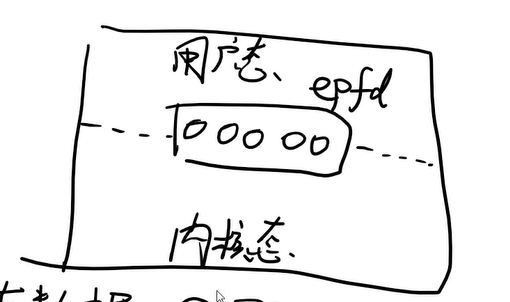 用户态、
epfd
00000
内核态.